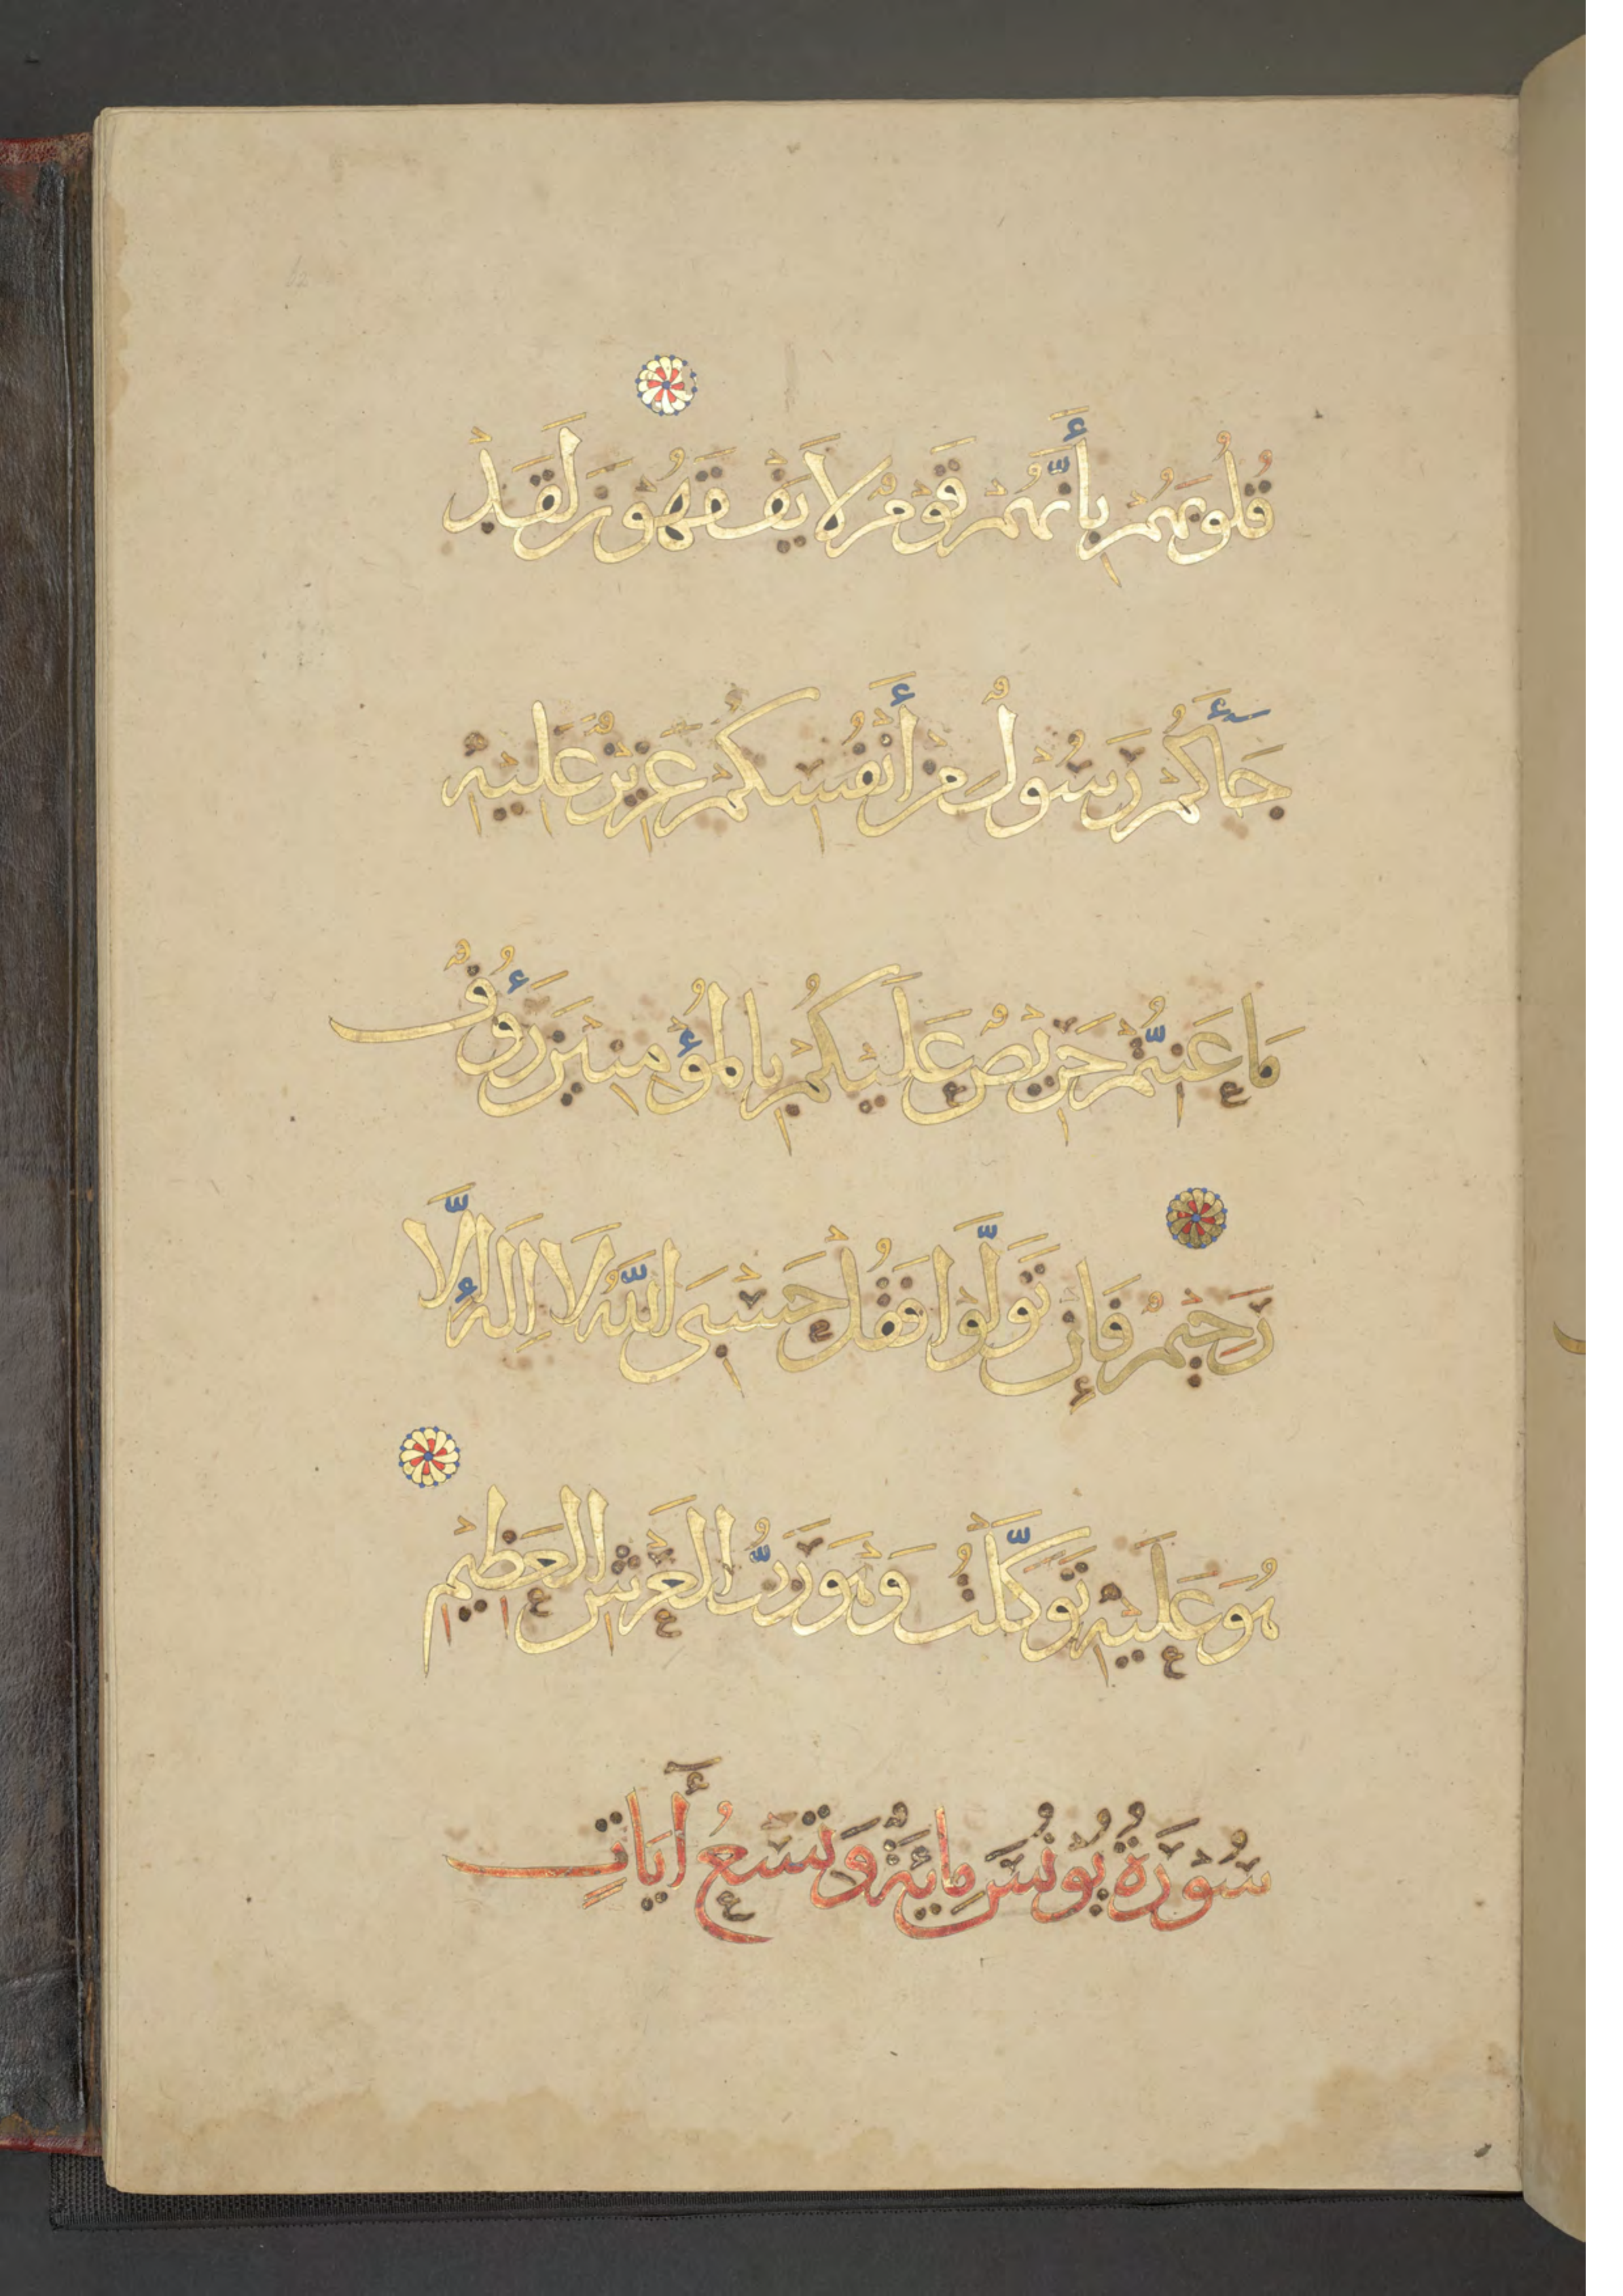 قُلُوبَهُمْ بِأَنَّهُمْ قَوْمٌ لَا يَفْقَهُونَ لَقَدْ
جَآءَكُمْ رَسُولٌ مِنْ أَنْفُسِكُمْ عَزِيزٌ عَلَيْهِ
مَا عَنِتُّمْ حَرِيصٌ عَلَيْكُمْ بِالْمُؤْمِنِينَ رَءُوفٌ
رَحِيمٌ فَإِنْ تَوَلَّوْا فَقُلْ حَسْبِيَ اللَّهُ لَا إِلَهَ إِلَّا
هُوَ عَلَيْهِ تَوَكَّلْتُ وَهُوَ رَبُّ الْعَرْشِ الْعَظِيمِ
سُورَةُ يُونُسَ مِائَةٌ وَتِسْعُ أَيَاتٍ